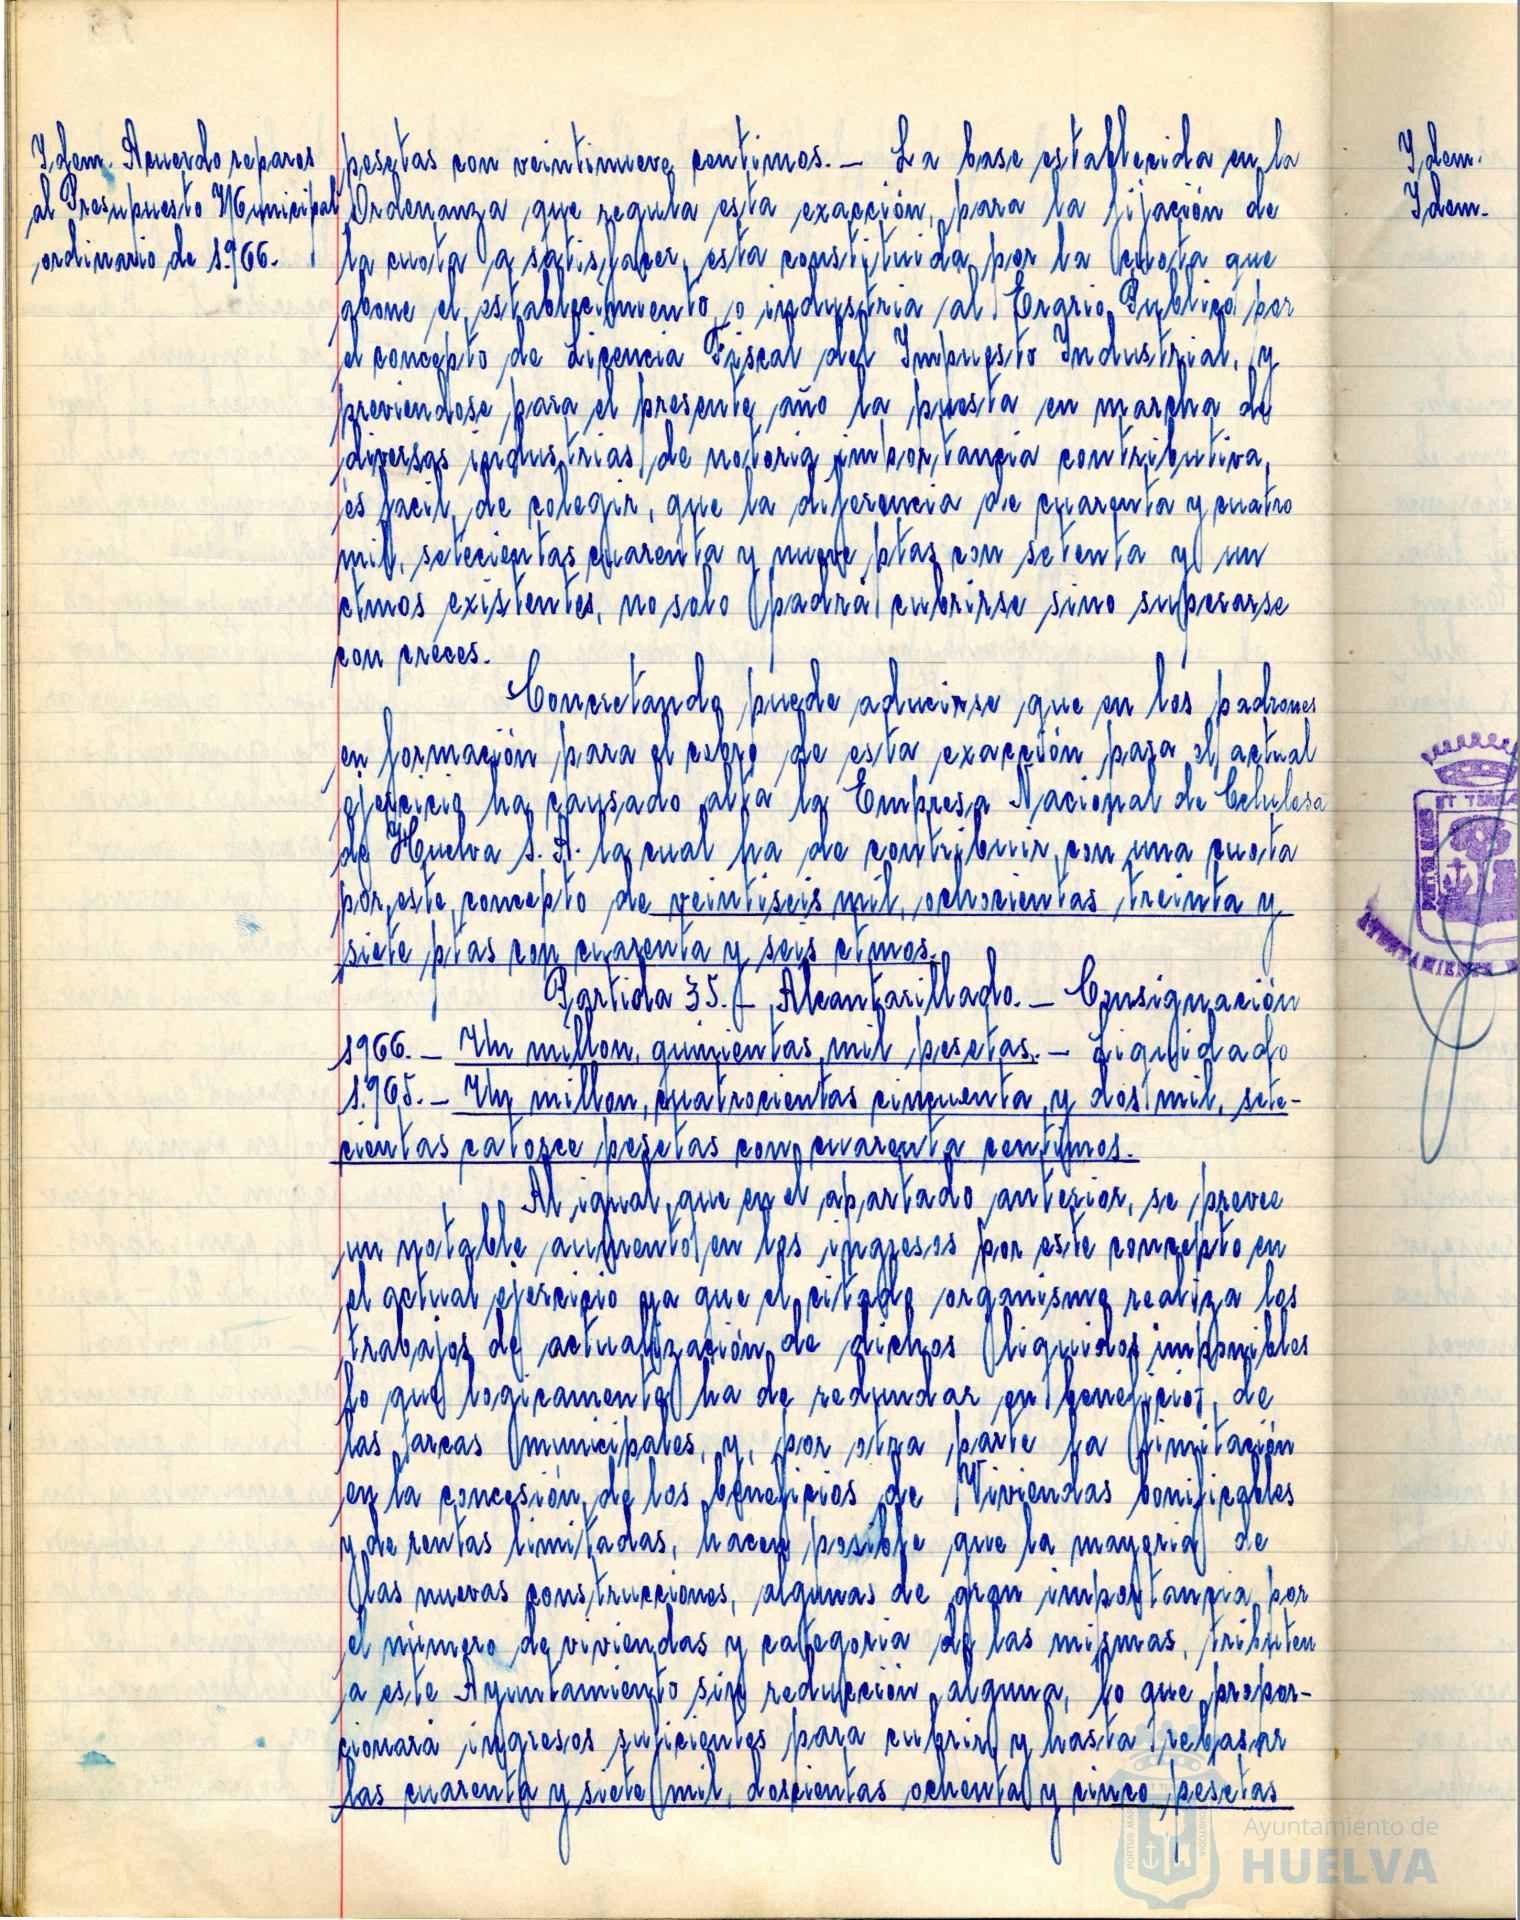 Idem. Acuerdo reparos
al Presupuesto Municipal
ordinario de 1.966.
pesetas con veintinueve centimos. — La base establecida en la
Ordenanza que regula esta exacción, para la fijación de
la cuota a satisfacer, esta constituida por la cuota que
abone el establecimiento o industria al Erario Publico por
el concepto de Licencia Fiscal del Impuesto Industrial, y
previendose para el presente año la puesta en marcha de
diversas industrias de notoria importancia contributiva,
es facil, de colegir, que la diferencia de cuarenta y cuatro
mil, setecientas cuarenta y nueve ptas con setenta y un
ctmos existentes, no solo padra cubrirse sino superarse
con creces.
Concretando puede aducirse que en los padrones
en formación para el cobro de esta exacción para el actual
ejercicio ha causado alta la Empresa Nacional de Celulosa
de Huelva S. A. la cual ha de contribuir con una cuota
por este concepto de veintiseis mil, ochocientas treinta y
siete ptas con cuarenta y seis ctmos.
Partida 35. — Alcantarillado. — Consignación
1966. — Un millon, quinientas mil pesetas. — Liquidado
1.965. — Un millon, cuatrocientas cincuenta y dos mil, sete-
cientas catorce pesetas con cuarenta centimos.
Al igual que en el apartado anterior, se prevee
un notable aumento en los ingresos por este concepto en
el actual ejercicio ya que el citado organismo realiza los
trabajos de actualización de dichos liquidos imponibles
lo que logicamente ha de redundar en beneficio, de
las arcas municipales, y, por otra parte la limitación
en la concesión de los beneficios de Viviendas bonificables
y de rentas limitadas, hacen posible que la mayoria de
las nuevas construcciones, algunas de gran importancia por
el número de viviendas y categoria de las mismas, tributen
a este Ayuntamiento sin reducción alguna, lo que propor-
cionará ingresos suficientes para cubrir y hasta rebasar
las cuarenta y siete mil, doscientas ochenta y cinco pesetas
Idem.
Idem.
ET TERRAE
PORTUS MARIS
AYUNTAMIENTO
Ayuntamiento de
HUELVA